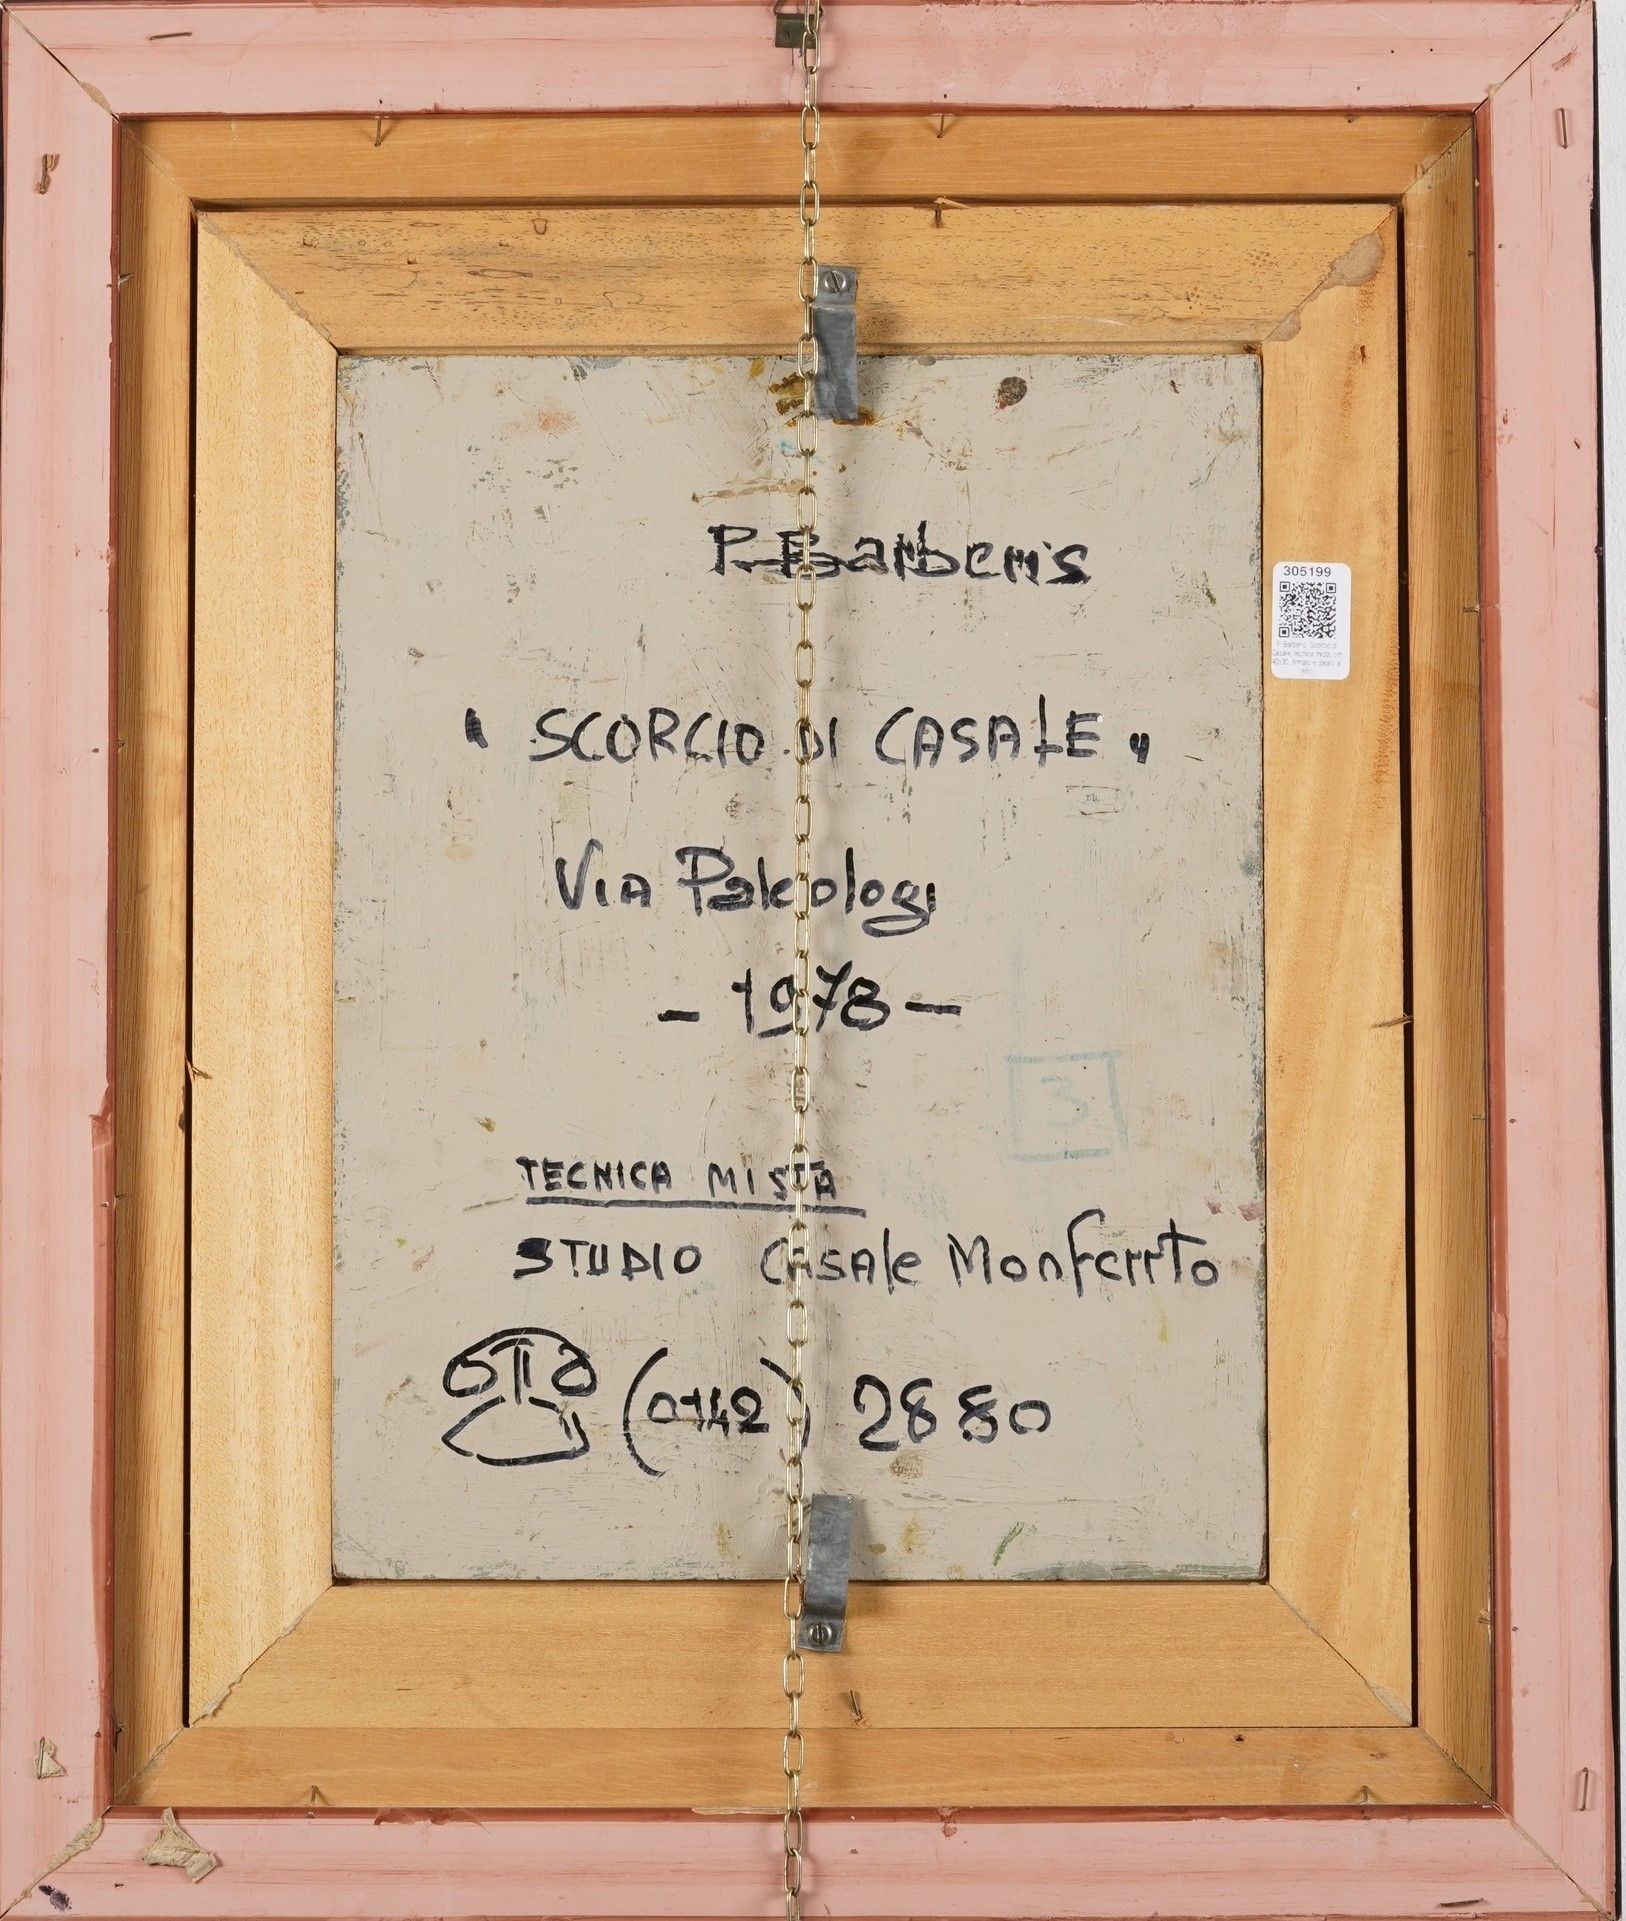 P. Barberis
305199
P. Barberis, Scorcio di
Casale, tecnica mista, cm
40x30, firmato e datato al
retro
" SCORCIO DI CASALE "
VIA Paleologi
- 1978 -
3
TECNICA MISTA
STUDIO CASAle Monferrto
(0142) 2880